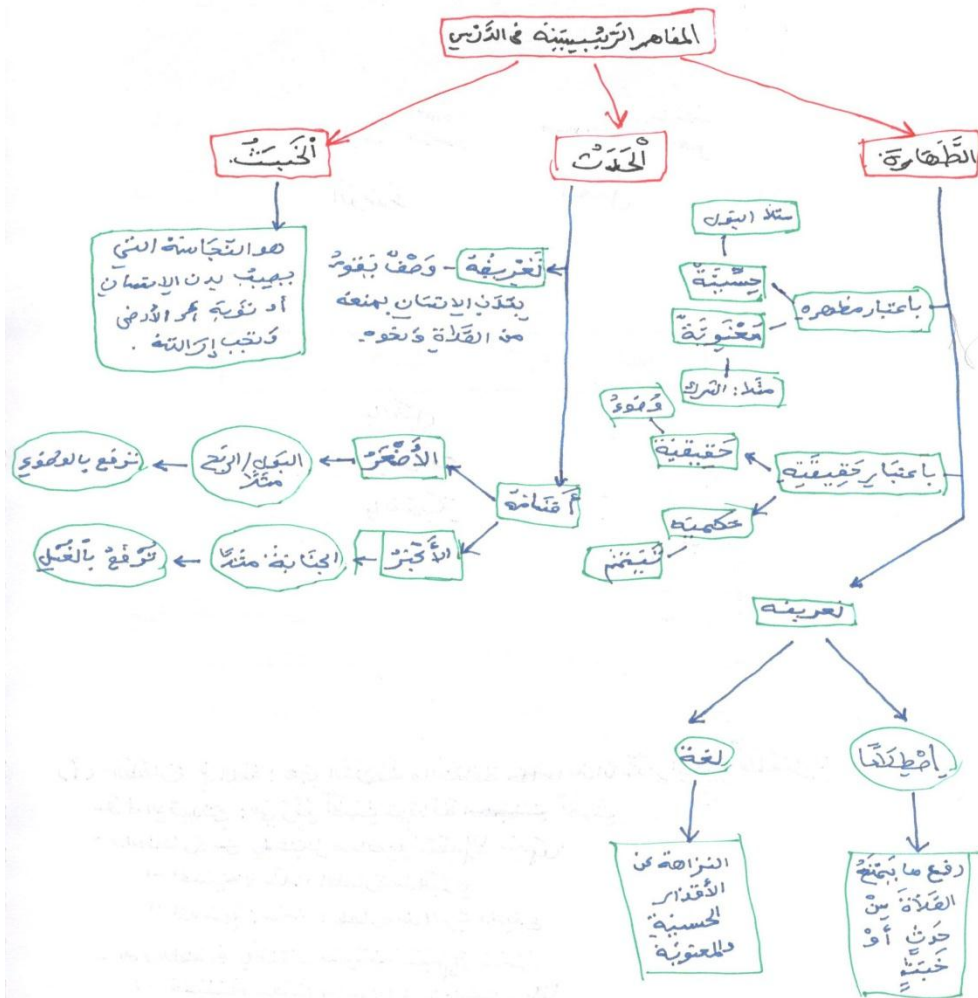 المفاهيم الرئيسية في الدرس
الطَّهَارة
الْحَدَثُ
الْخَبَثُ
باعتبار مظهره
حِسِّيَّةٌ
مثلا البول
مَعْنَوِيَّةٌ
مثلا: الشرك
باعتبار حَقِيقَتِهِ
حَقِيقِيَّة
وُضوءٌ
حكمية
تَيَمُّم
تعريفه
إصْطِلَاحًا
رفع ما يَمْنَعُ
الصَّلَاةَ مِنْ
حَدَثٍ أَوْ
خَبَثٍ
لغة
النزاهة عن
الأقذار
الحسية
والمعنوية
تَعْرِيفُهُ - وَصْفٌ يَقُومُ
بِبَدَنِ الإنسان يمنعه
من الصَّلَاةِ ونحوه.
أقسَامُهُ
الأَصْغَرُ
البول/الريح
مثلًا
ترفع بالوضوءِ
الأَكْبَرُ
الجَنَابَةُ مثلًا
تُرْفَعُ بِالْغُسْلِ
هو النَّجَاسَة التي
يصيب بدن الإنسان
أو ثوبه أو الأرض
وتجب إزالته.